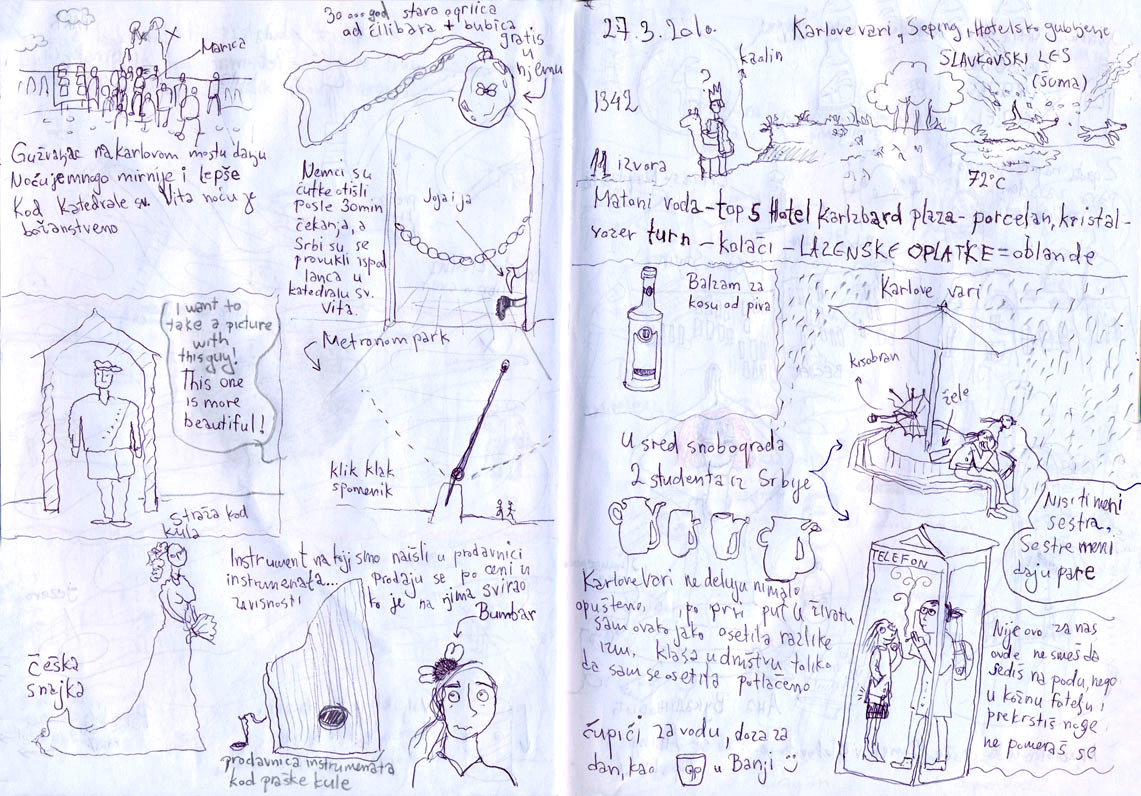 Marica
Gužvanjac na karlovom mostu danju
Noću je mnogo mirnije i lepše
Kod katedrale sv. Vita noću je
božanstveno
30 000 god stara ogrlica
od ćilibara + bubica
gratis
u
njemu
Nemci su
ćutke otišli
posle 30min
čekanja, a
Srbi su se
provukli ispod
lanca u
katedralu sv.
Vita.
Joja i ja
I want to
take a picture
with
this guy!
This one
is more
beautiful!
Straža kod
kula
Metronom park
klik klak
spomenik
češka
snajka
Instrument na koji smo naišli u prodavnici
instrumenata... Prodaju se po ceni u
zavisnosti ko je na njima svirao
Bumbar
prodavnica instrumenata
kod praške kule
27.3.2010.
Karlove vari, šoping, hotelsko gubljenje
kaolin
SLAVKOVSKI LES
(šuma)
1342
11 izvora
72°C
Matoni voda - top 5 Hotel Karlzbard plaza - porcelan, kristal -
rozer turn - kolači - LAZENSKE OPLATKE = oblande
Balzam za
kosu od piva
Karlove vari
kišobran
žele
U sred snobograda
2 studenta iz Srbije
Nisi ti meni
sestra,
Sestre meni
daju pare
TELEFON
Karlove vari ne deluju nimalo
opušteno, po prvi put u životu
sam ovako jako osetila razlike
izm. klasa u društvu toliko
da sam se osetila potlačeno
Nije ovo za nas
ovde ne smeš da
sediš na podu, nego
u kožnu fotelju i
prekrstiš noge i
ne pomeraš se
čupići za vodu, doza za
dan, kao u Banji